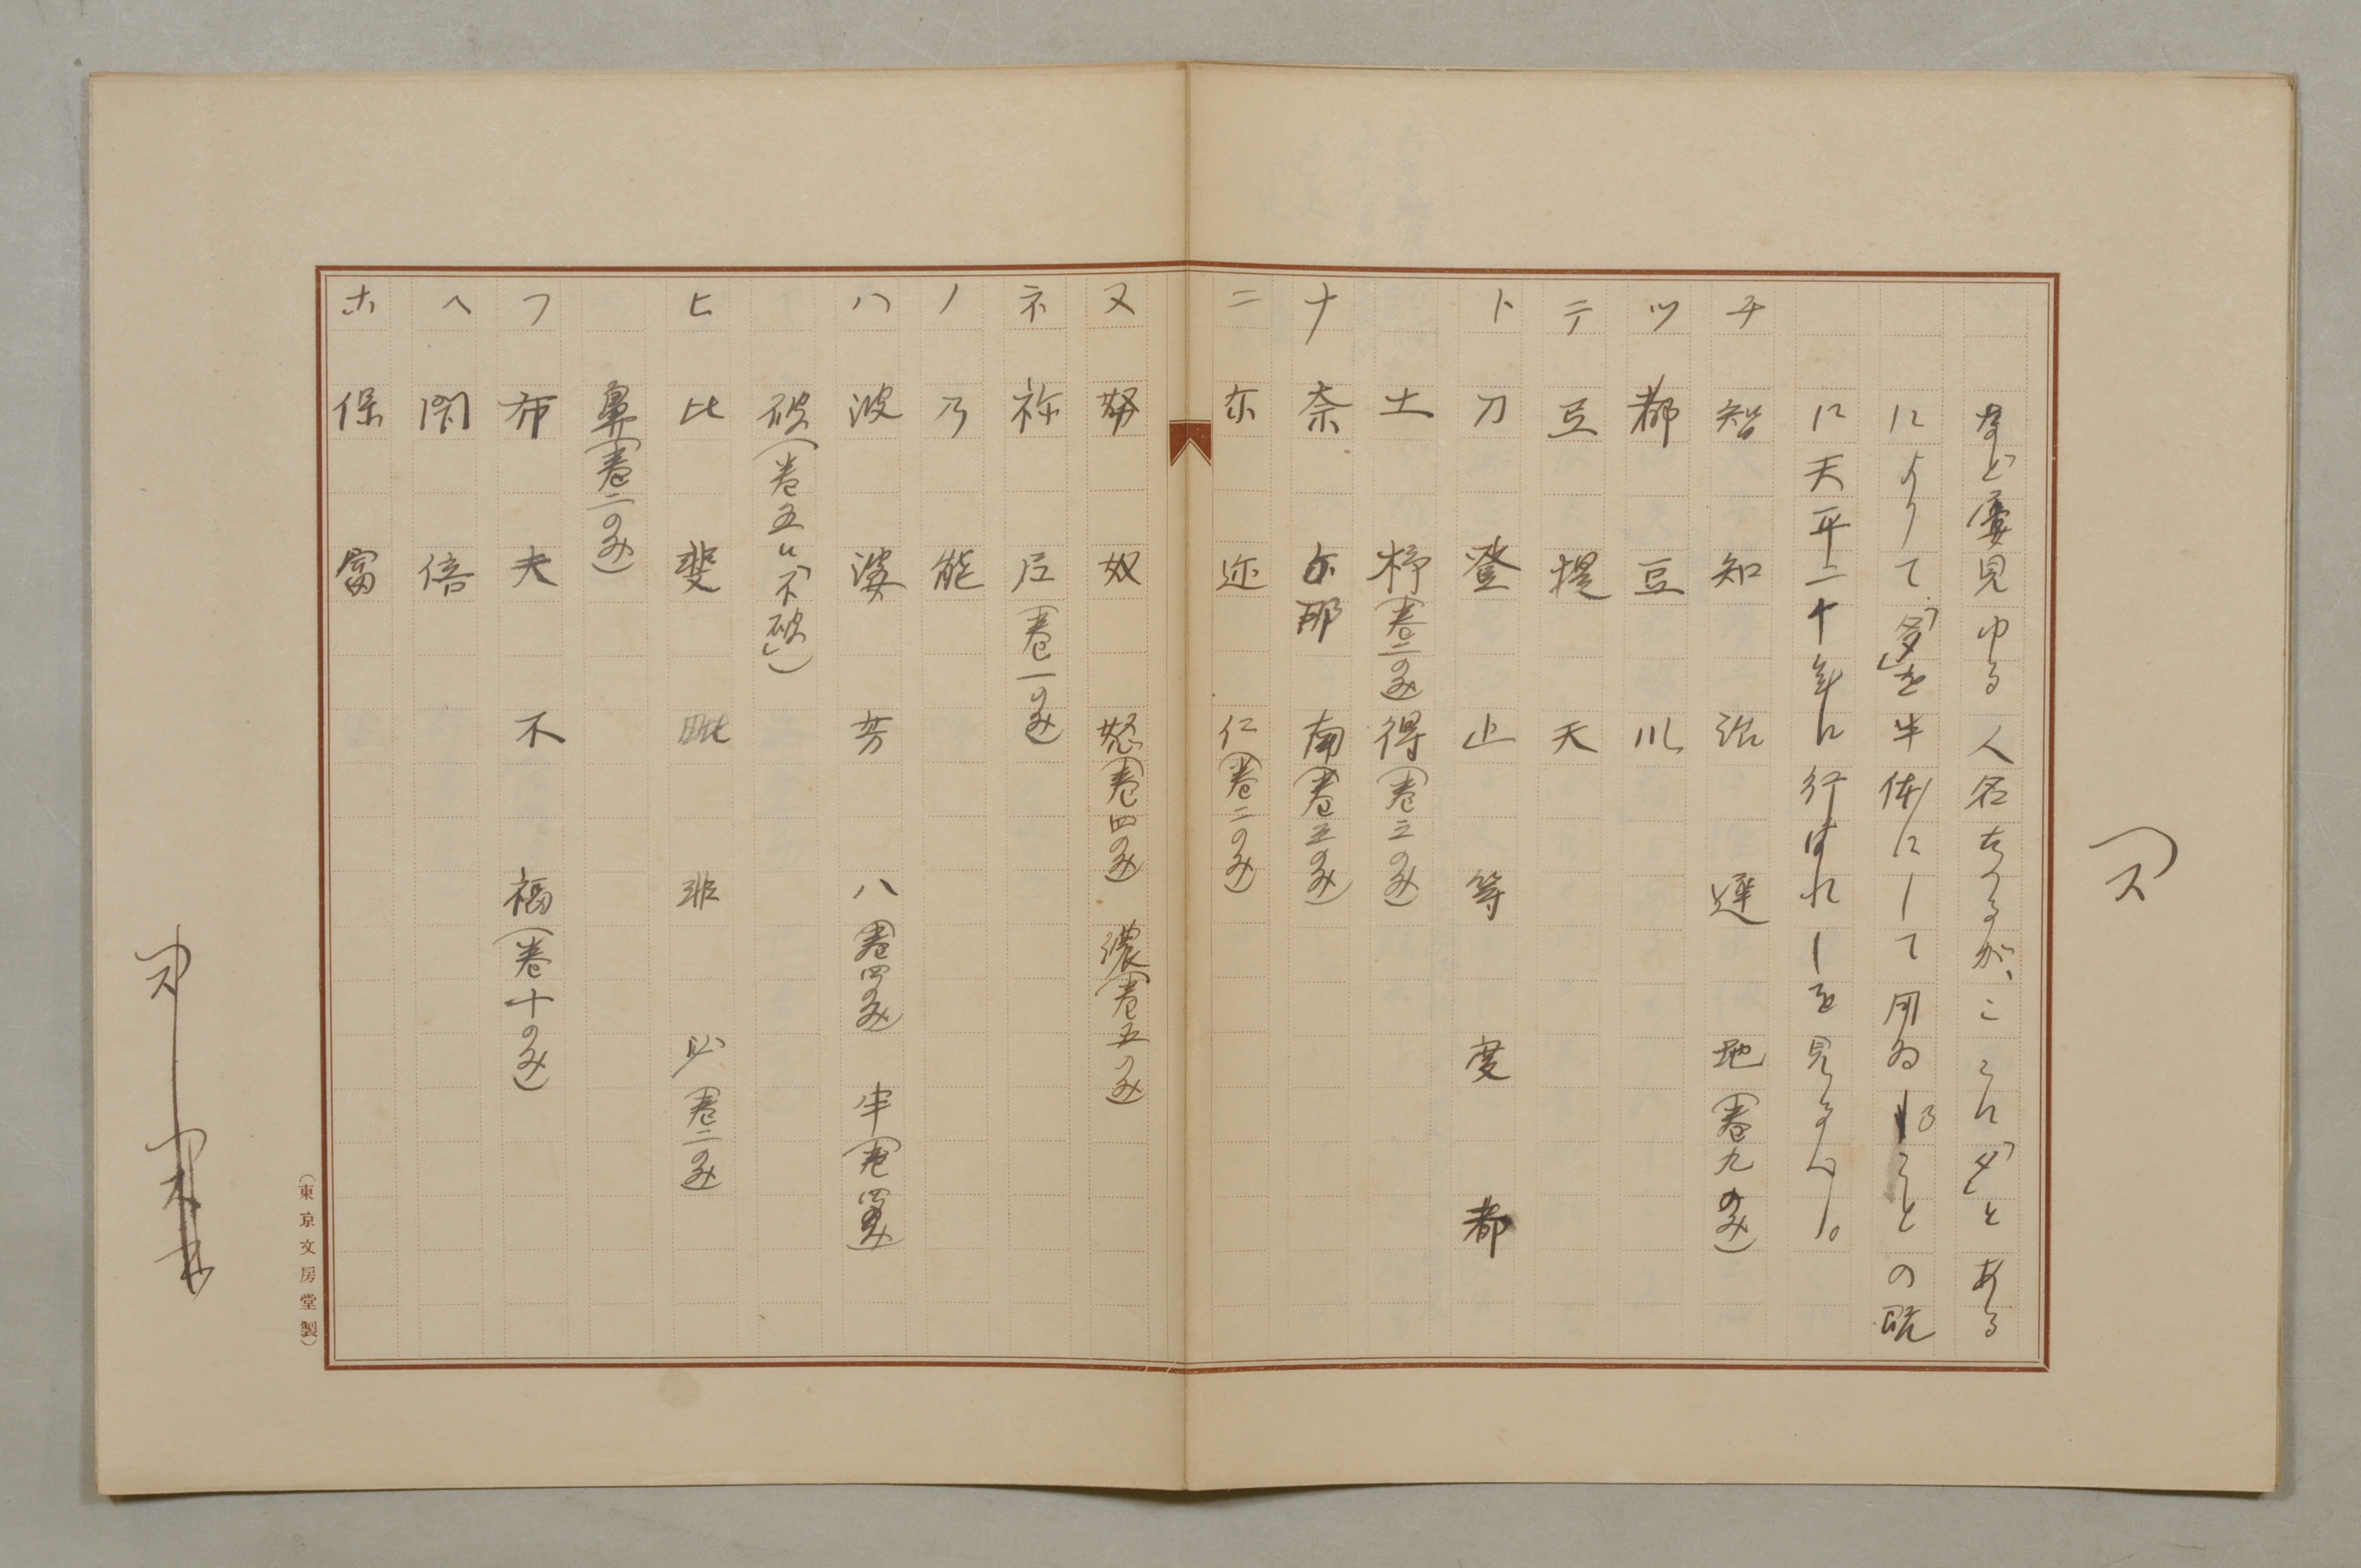 など屡見ゆる人名なるが、これに「夕」とある
によりて「多」を半体にして用ゐることの既
に天平二十年に行はれしを見るべし。
チ 智 知 治 遅 地(巻九のみ)
ツ 都 豆 川
テ 弖 提 天
ト 刀 登 止 等 度 都
土 杼(巻二のみ) 得(巻三のみ)
ナ 奈 那 南(巻五のみ)
ニ 尓 迩 仁(巻二のみ)
ヌ 努 奴 怒(巻四のみ) 濃(巻五のみ)
ネ 祢 尼(巻一のみ)
ノ 乃 能
ハ 波 婆 芳 八(巻四のみ) 半(巻四のみ)
破(巻五に「不破」)
ヒ 比 斐 毗 非 必(巻二のみ)
鼻(巻二のみ)
フ 布 夫 不 福(巻十のみ)
ヘ 閇 倍
ホ 保 富
(東京文房堂製)